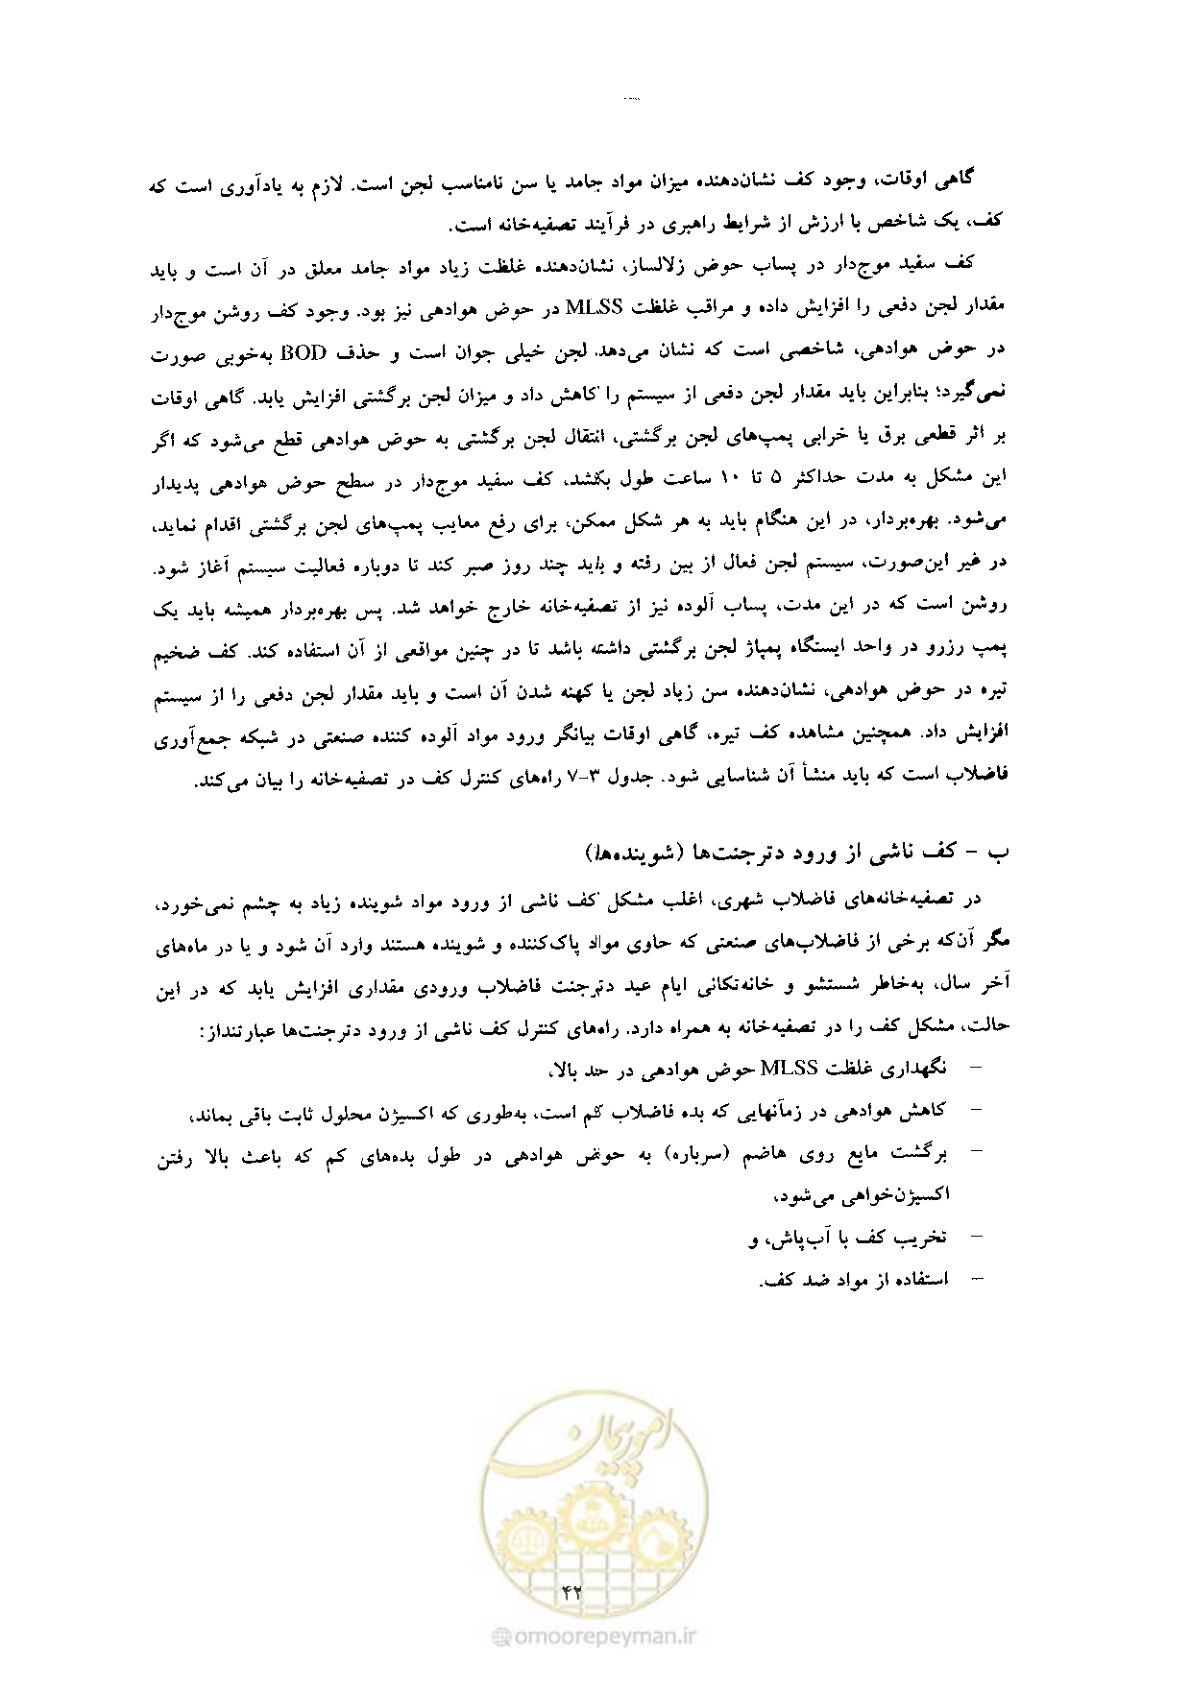 گاهی اوقات، وجود کف نشان‌دهنده میزان مواد جامد یا سن نامناسب لجن است. لازم به یادآوری است که
کف، یک شاخص با ارزش از شرایط راهبری در فرآیند تصفیه‌خانه است.
کف سفید موج‌دار در پساب حوض زلالساز، نشان‌دهنده غلظت زیاد مواد جامد معلق در آن است و باید
مقدار لجن دفعی را افزایش داده و مراقب غلظت MLSS در حوض هوادهی نیز بود. وجود کف روشن موج‌دار
در حوض هوادهی، شاخصی است که نشان می‌دهد. لجن خیلی جوان است و حذف BOD به‌خوبی صورت
نمی‌گیرد؛ بنابراین باید مقدار لجن دفعی از سیستم را کاهش داد و میزان لجن برگشتی افزایش یابد. گاهی اوقات
بر اثر قطعی برق یا خرابی پمپ‌های لجن برگشتی، انتقال لجن برگشتی به حوض هوادهی قطع می‌شود که اگر
این مشکل به مدت حداکثر ۵ تا ۱۰ ساعت طول بکشد، کف سفید موج‌دار در سطح حوض هوادهی پدیدار
می‌شود. بهره‌بردار، در این هنگام باید به هر شکل ممکن، برای رفع معایب پمپ‌های لجن برگشتی اقدام نماید،
در غیر این‌صورت، سیستم لجن فعال از بین رفته و باید چند روز صبر کند تا دوباره فعالیت سیستم آغاز شود.
روشن است که در این مدت، پساب آلوده نیز از تصفیه‌خانه خارج خواهد شد. پس بهره‌بردار همیشه باید یک
پمپ رزرو در واحد ایستگاه پمپاژ لجن برگشتی داشته باشد تا در چنین مواقعی از آن استفاده کند. کف ضخیم
تیره در حوض هوادهی، نشان‌دهنده سن زیاد لجن یا کهنه شدن آن است و باید مقدار لجن دفعی را از سیستم
افزایش داد. همچنین مشاهده کف تیره، گاهی اوقات بیانگر ورود مواد آلوده کننده صنعتی در شبکه جمع‌آوری
فاضلاب است که باید منشأ آن شناسایی شود. جدول ۳-۷ راه‌های کنترل کف در تصفیه‌خانه را بیان می‌کند.
ب - کف ناشی از ورود دترجنت‌ها (شوینده‌ها)
در تصفیه‌خانه‌های فاضلاب شهری، اغلب مشکل کف ناشی از ورود مواد شوینده زیاد به چشم نمی‌خورد،
مگر آن‌که برخی از فاضلاب‌های صنعتی که حاوی مواد پاک‌کننده و شوینده هستند وارد آن شود و یا در ماه‌های
آخر سال، به‌خاطر شستشو و خانه‌تکانی ایام عید دترجنت فاضلاب ورودی مقداری افزایش یابد که در این
حالت، مشکل کف را در تصفیه‌خانه به همراه دارد. راه‌های کنترل کف ناشی از ورود دترجنت‌ها عبارتنداز:
– نگهداری غلظت MLSS حوض هوادهی در حد بالا،
– کاهش هوادهی در زمانهایی که بده فاضلاب کم است، به‌طوری که اکسیژن محلول ثابت باقی بماند،
– برگشت مایع روی هاضم (سرباره) به حوض هوادهی در طول بده‌های کم که باعث بالا رفتن
اکسیژن‌خواهی می‌شود،
– تخریب کف با آب‌پاش، و
– استفاده از مواد ضد کف.
امور پیمان
۴۲
omoorepeyman.ir